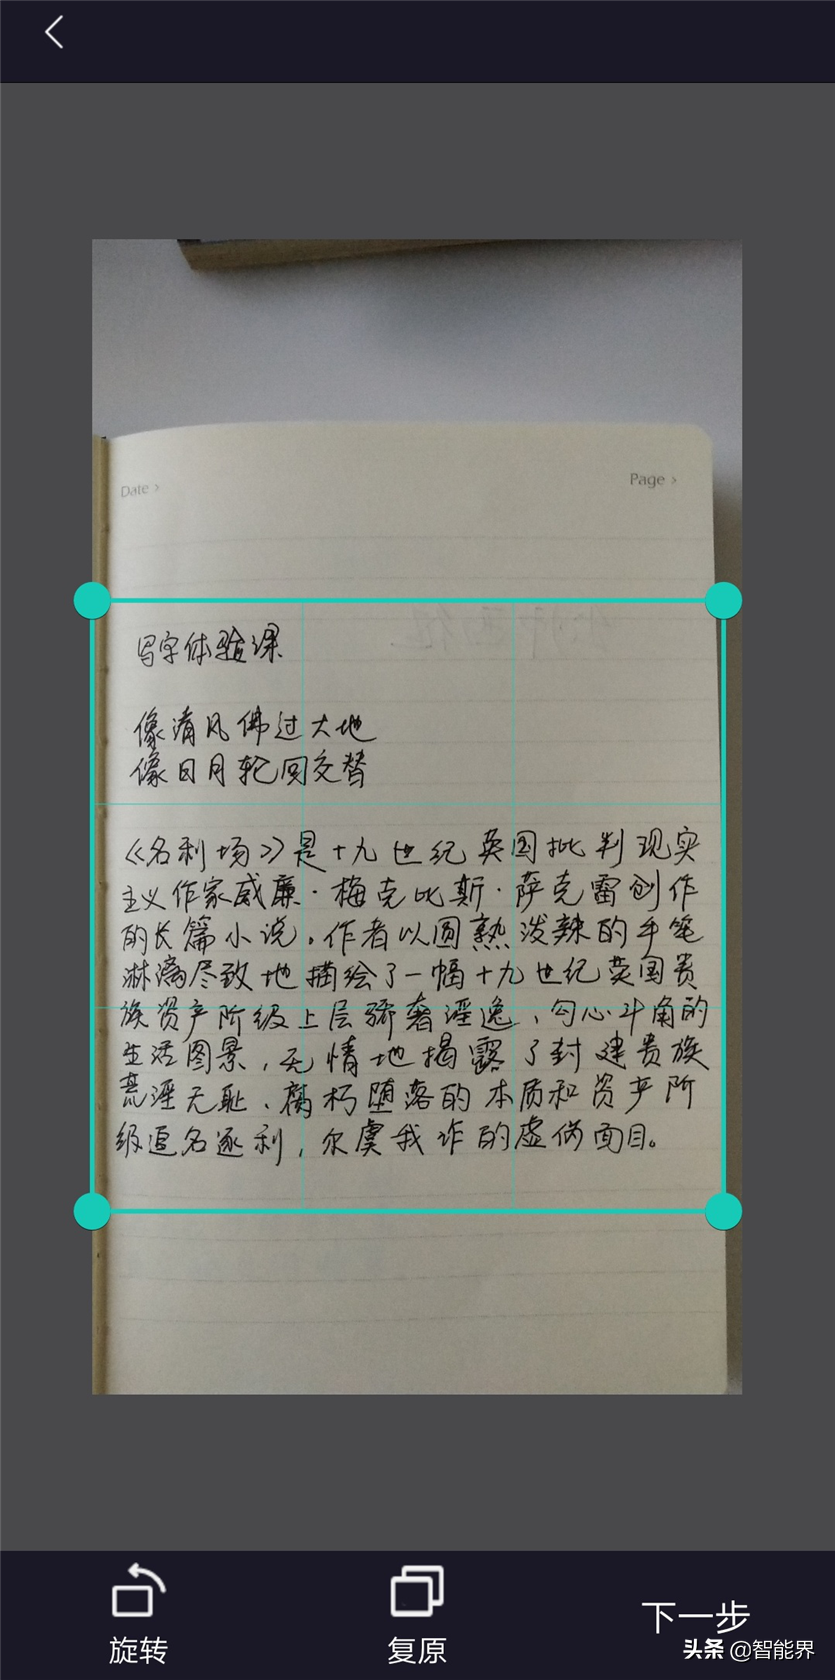 Date >
Page >
写字体验课
像清风佛过大地
像日月轮回交替
《名利场》是十九世纪英国批判现实
主义作家威廉·梅克比斯·萨克雷创作
的长篇小说。作者以圆熟泼辣的手笔
淋漓尽致地描绘了一幅十九世纪英国贵
族资产阶级上层骄奢淫逸、勾心斗角的
生活图景，无情地揭露了封建贵族
荒淫无耻、腐朽堕落的本质和资产阶
级追名逐利，尔虞我诈的虚伪面目。
旋转
复原
下一步
头条 @智能界